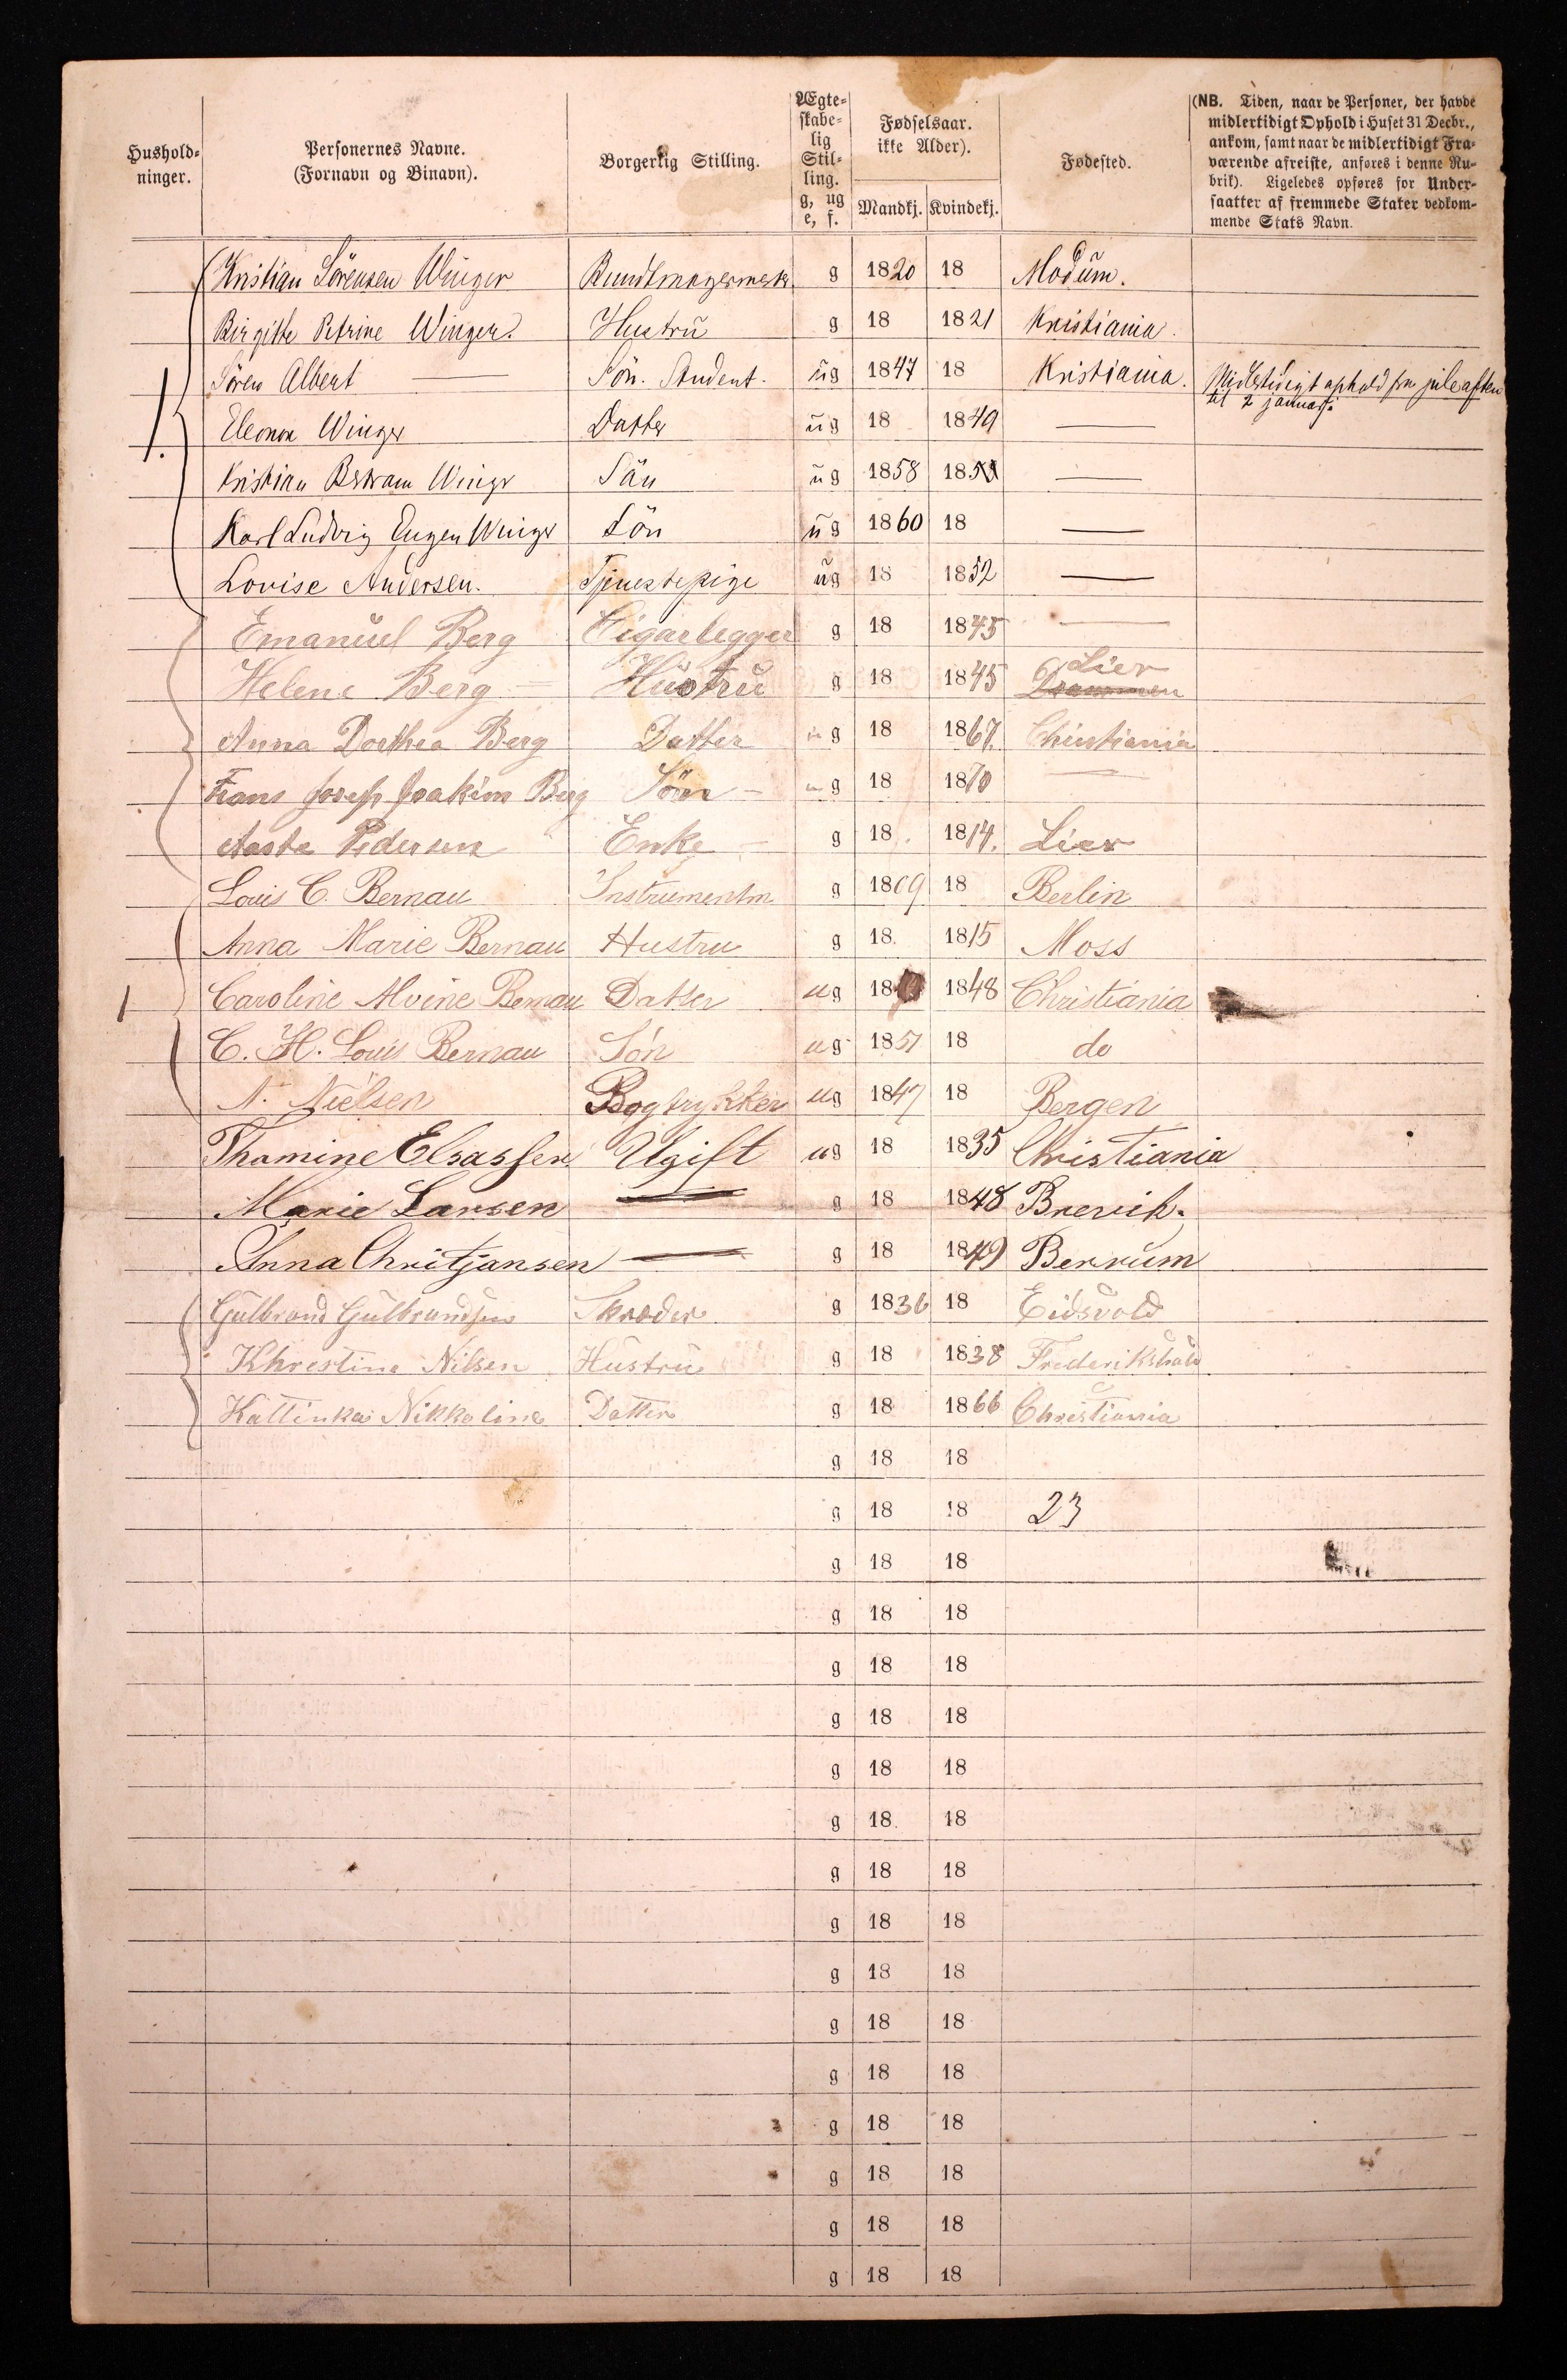 Hushold-
ninger.
Personernes Navne.
(Fornavn og Binavn).
Borgerlig Stilling.
Ægte-
skabe-
lig
Stil-
ling.
g, ug
e, f.
Fødselsaar.
ikke Alder).
Mandkj. Kvindekj.
Fødested.
(NB. Tiden, naar de Personer, der havde
midlertidigt Ophold i Huset 31 Decbr.,
ankom, samt naar de midlertidigt Fra-
værende afreiste, anføres i denne Ru-
brik). Ligeledes opføres for Under-
saatter af fremmede Stater vedkom-
mende Stats Navn.
Kristian Sörensen Winger Bundtmagermest. g 1820 18 Modum.
Birgitte Petrine Winger. Hustru g 18 1821 Kristiania.
1. Sören Albert — Sön. Student. ug 1847 18 Kristiania. Midlertidigt ophold fra juleaften
til 2 januar.
Eleonora Winger Datter ug 18 1849 —
Kristian Bertram Winger Sön ug 1858 18 —
Karl Ludvig Eugen Winger Sön ug 1860 18 —
Lovise Andersen. Tjenestepige ug 18 1852 —
Emanuel Berg Cigarlegger g 18 1845 —
Helene Berg — Hustru g 18 1845 Lier Drammen
Anna Dorthea Berg Datter ug 18 1867. Christiania
Frans Josef Joakim Berg Sön — ug 18 1870 —
Aaste Pedersen Enke — g 18 1814. Lier
Louis C. Bernau Instrumentm g 1809 18 Berlin
Anna Marie Bernau Hustru g 18 1815 Moss
1 Caroline Alvine Bernau Datter ug 18 1848 Christiania
C. H. Louis Bernau Sön ug 1851 18 do
N. Nielsen Bogtrykker ug 1847 18 Bergen
Thamine Elsassen Ugift ug 18 1835 Christiania
Marie Larsen — g 18 1848 Brevik.
Anna Chritjansen — g 18 1849 Berrum
Gulbrand Gulbrandsen Skræder g 1836 18 Eidsvold
Khrestine Nilsen Hustru g 18 1838 Frederikshald
Kattinka Nikkoline Datter g 18 1866 Christiania
g 18 18
g 18 18 23
g 18 18
g 18 18
g 18 18
g 18 18
g 18 18
g 18 18
g 18 18
g 18 18
g 18 18
g 18 18
g 18 18
g 18 18
g 18 18
g 18 18
g 18 18